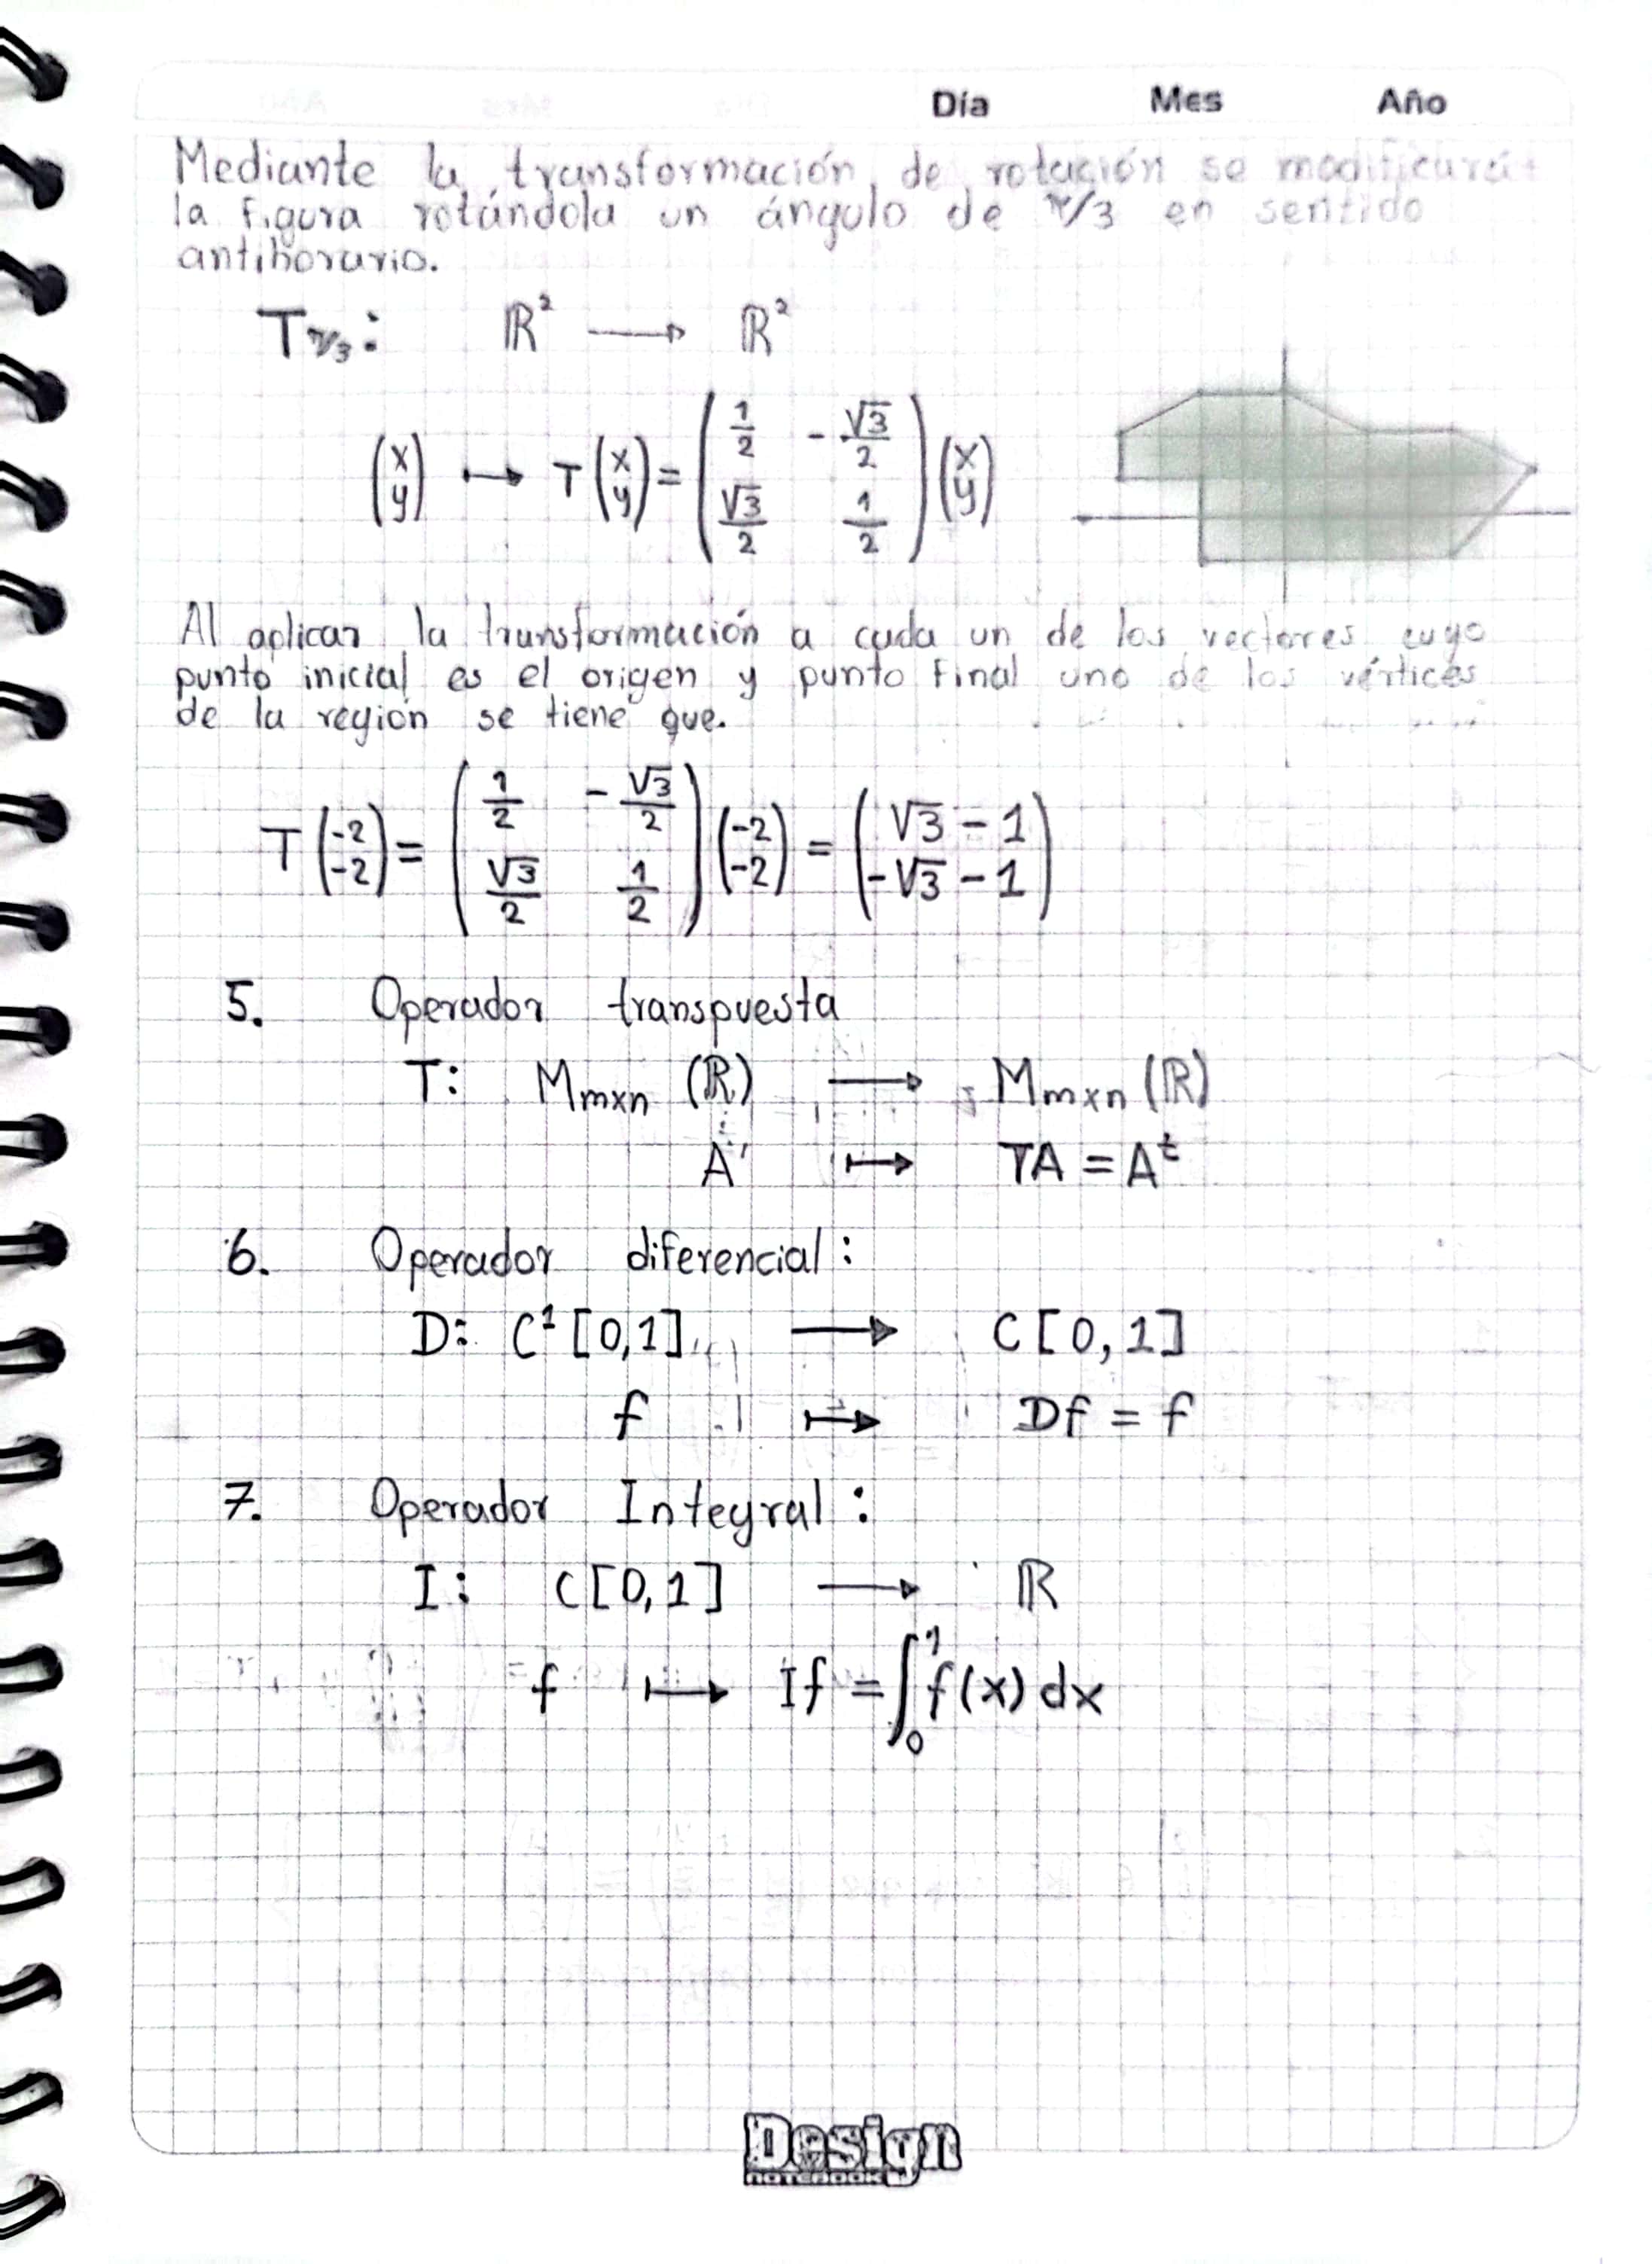 Día Mes Año
Mediante la transformación de rotación se modificará
la figura rotándola un ángulo de π/3 en sentido
antihorario.
Tπ/3: ℝ² ⟶ ℝ²
(x y) ↦ T(x y) = (1/2 -√3/2 √3/2 1/2)(x y)
Al aplicar la transformación a cada un de los vectores cuyo
punto inicial es el origen y punto final uno de los vértices
de la región se tiene que.
T(-2 -2) = (1/2 -√3/2 √3/2 1/2)(-2 -2) = (√3 - 1 -√3 - 1)
5. Operador transpuesta
T: Mmxn (ℝ) ⟶ Mmxn (ℝ)
A ↦ TA = Aᵗ
6. Operador diferencial:
D: C¹[0,1] ⟶ C[0,1]
f ↦ Df = f
7. Operador Integral:
I: C[0,1] ⟶ ℝ
f ↦ If = ∫₀¹ f(x) dx
Design
NOTEBOOK